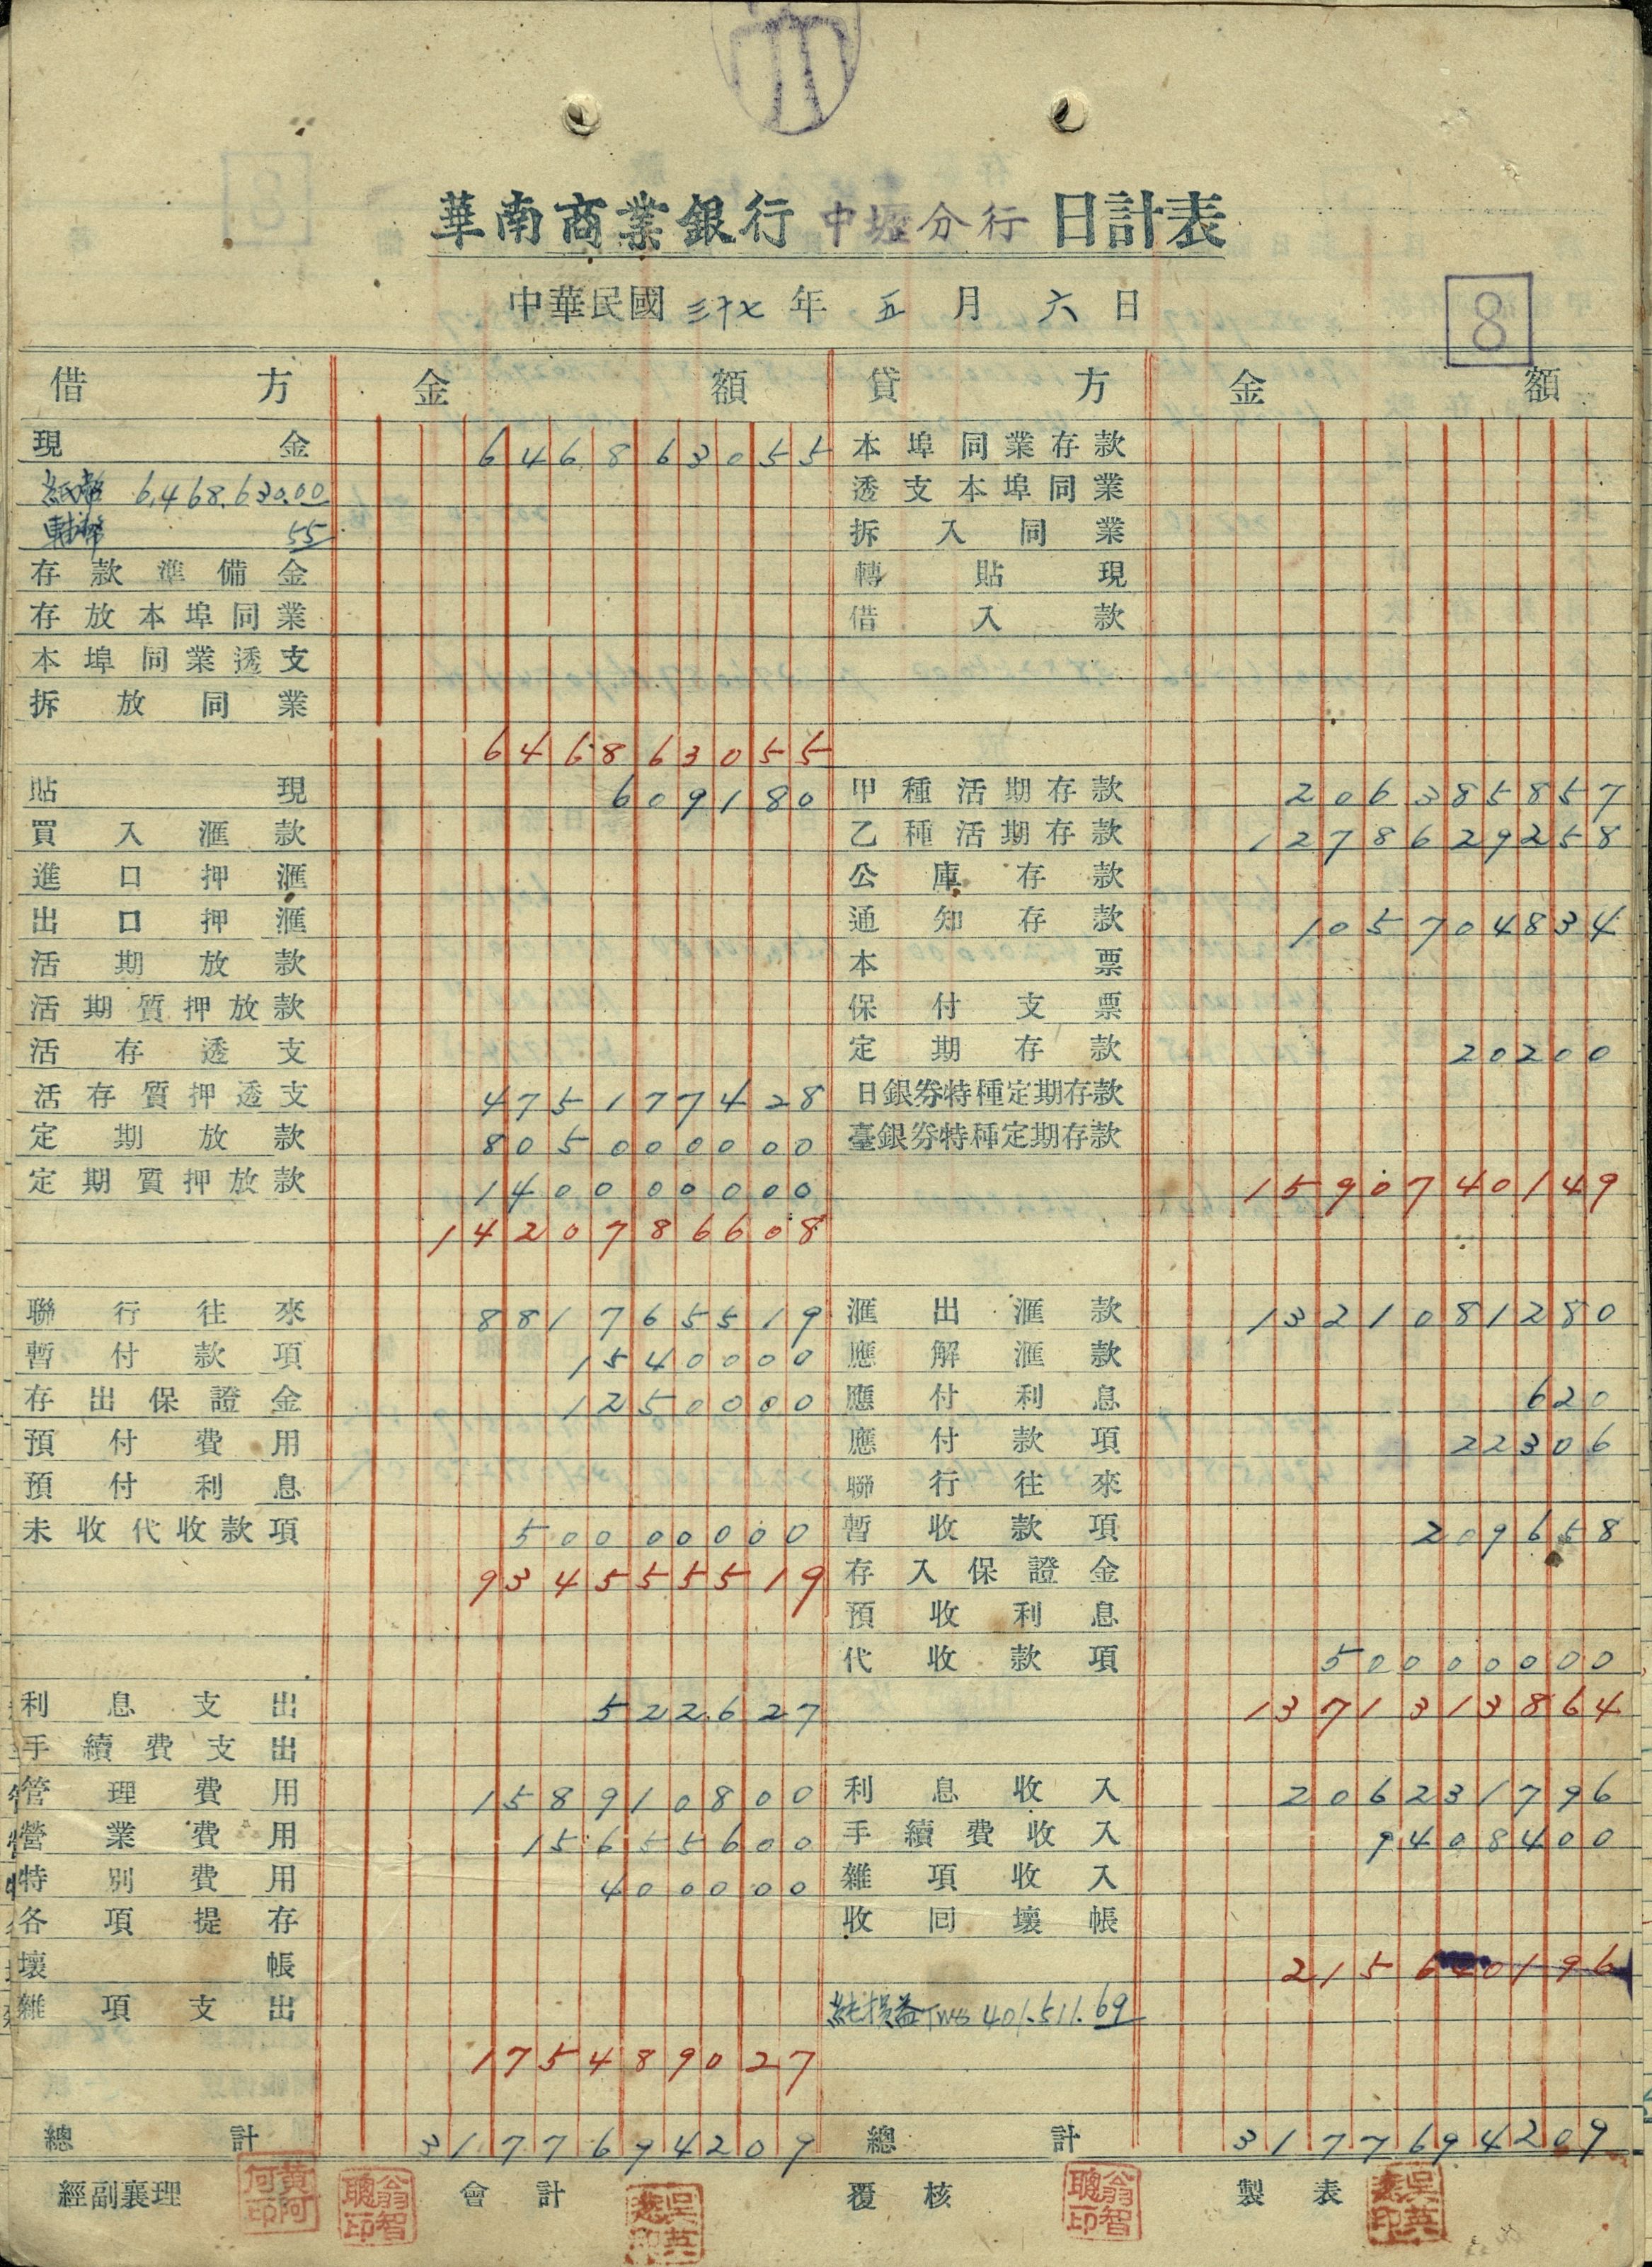 華南商業銀行 中壢分行 日計表
中華民國 三十七 年 五 月 六 日
8
借方 金額 貸方 金額
現金 646863055 本埠同業存款
紙幣 6,468,630.00 透支本埠同業
輔幣 55 拆入同業
存款準備金 轉貼現
存放本埠同業 借入款
本埠同業透支
拆放同業
646863055
貼現 609180 甲種活期存款 206385857
買入滙款 乙種活期存款 1278629258
進口押滙 公庫存款
出口押滙 通知存款 105704834
活期放款 本票
活期質押放款 保付支票
活存透支 定期存款 20200
活存質押透支 475177428 日銀券特種定期存款
定期放款 805000000 臺銀券特種定期存款
定期質押放款 140000000 1590740149
1420786608
聯行往來 881765519 滙出滙款 1321081280
暫付款項 1540000 應解滙款
存出保證金 1250000 應付利息 620
預付費用 應付款項 22306
預付利息 聯行往來
未收代收款項 50000000 暫收款項 209658
934555519 存入保證金
預收利息
代收款項 50000000
利息支出 522627 1371313864
手續費支出
管理費用 158910800 利息收入 206231796
營業費用 15655600 手續費收入 9408400
特別費用 400000 雜項收入
各項提存 收回壞帳
壞帳 215640196
雜項支出 純損益 TW$ 401.511.69
175489027
總計 3177694209 總計 3177694209
經副襄理 會計 覆核 製表
黃阿何印 翁智聰印 翁智聰印